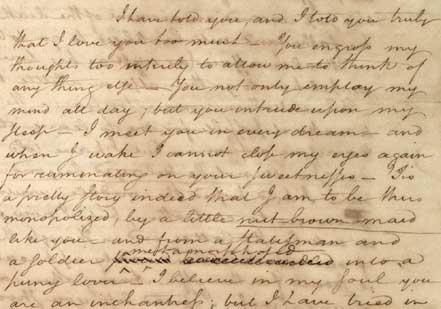 I have told you, and I told you truly
that I love you too much — You engross my
thoughts too intirely to allow me to think of
any thing else — You not only employ my
mind all day; but you intrude upon my
sleep — I meet you in every dream — and
when I wake I cannot close my eyes again
for ruminating on your sweetnesses — 'Tis
a pretty story indeed that I am to be thus
monopolized, by a little nut brown maid
like you — and from a statesman and
a soldier metamorphosed into a
puny lover — I believe in my soul you
are an inchantress; but I have tried in